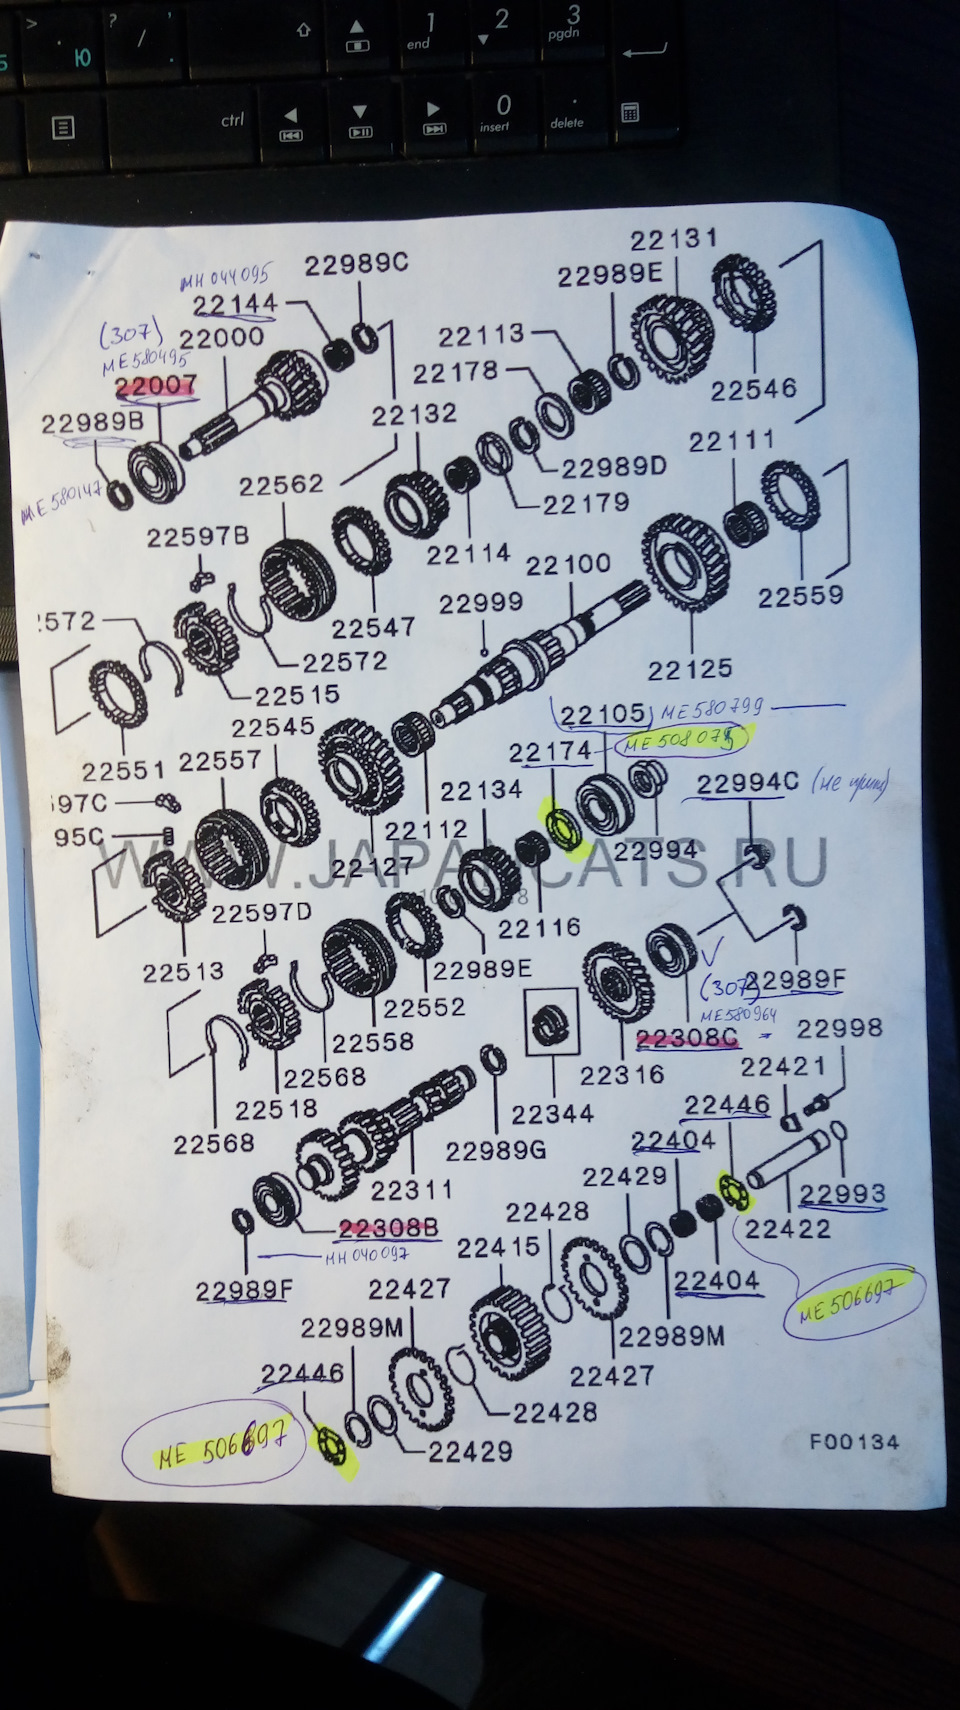 > .
Ю
? ,
/ .
1
end
2
3
pgdn
ctrl
0
insert
.
delete
22131
22989C
22989E
MH 044095
22144
(307)
22000
ME 580495
22007
22113
22178
22546
22989B
22132
22111
22989D
ME 580147
22562
22179
22597B
22114
22100
22999
22559
:572
22547
22572
22125
22515
22105
ME 580799
22545
22174
ME 508075
22551
22557
22994C
97C
22134
95C
22112
22994
WWW.JAPANCATS.RU
22127
22597D
22116
22513
22989E
(307)
22989F
22552
ME 580964
22998
22558
22308C
22421
22568
22316
22446
22518
22344
22404
22568
22989G
22429
22311
22993
22428
22422
22308B
22415
MH 040097
22404
22989F
22427
ME 506697
22989M
22989M
22446
22427
22428
ME 506697
22429
F00134